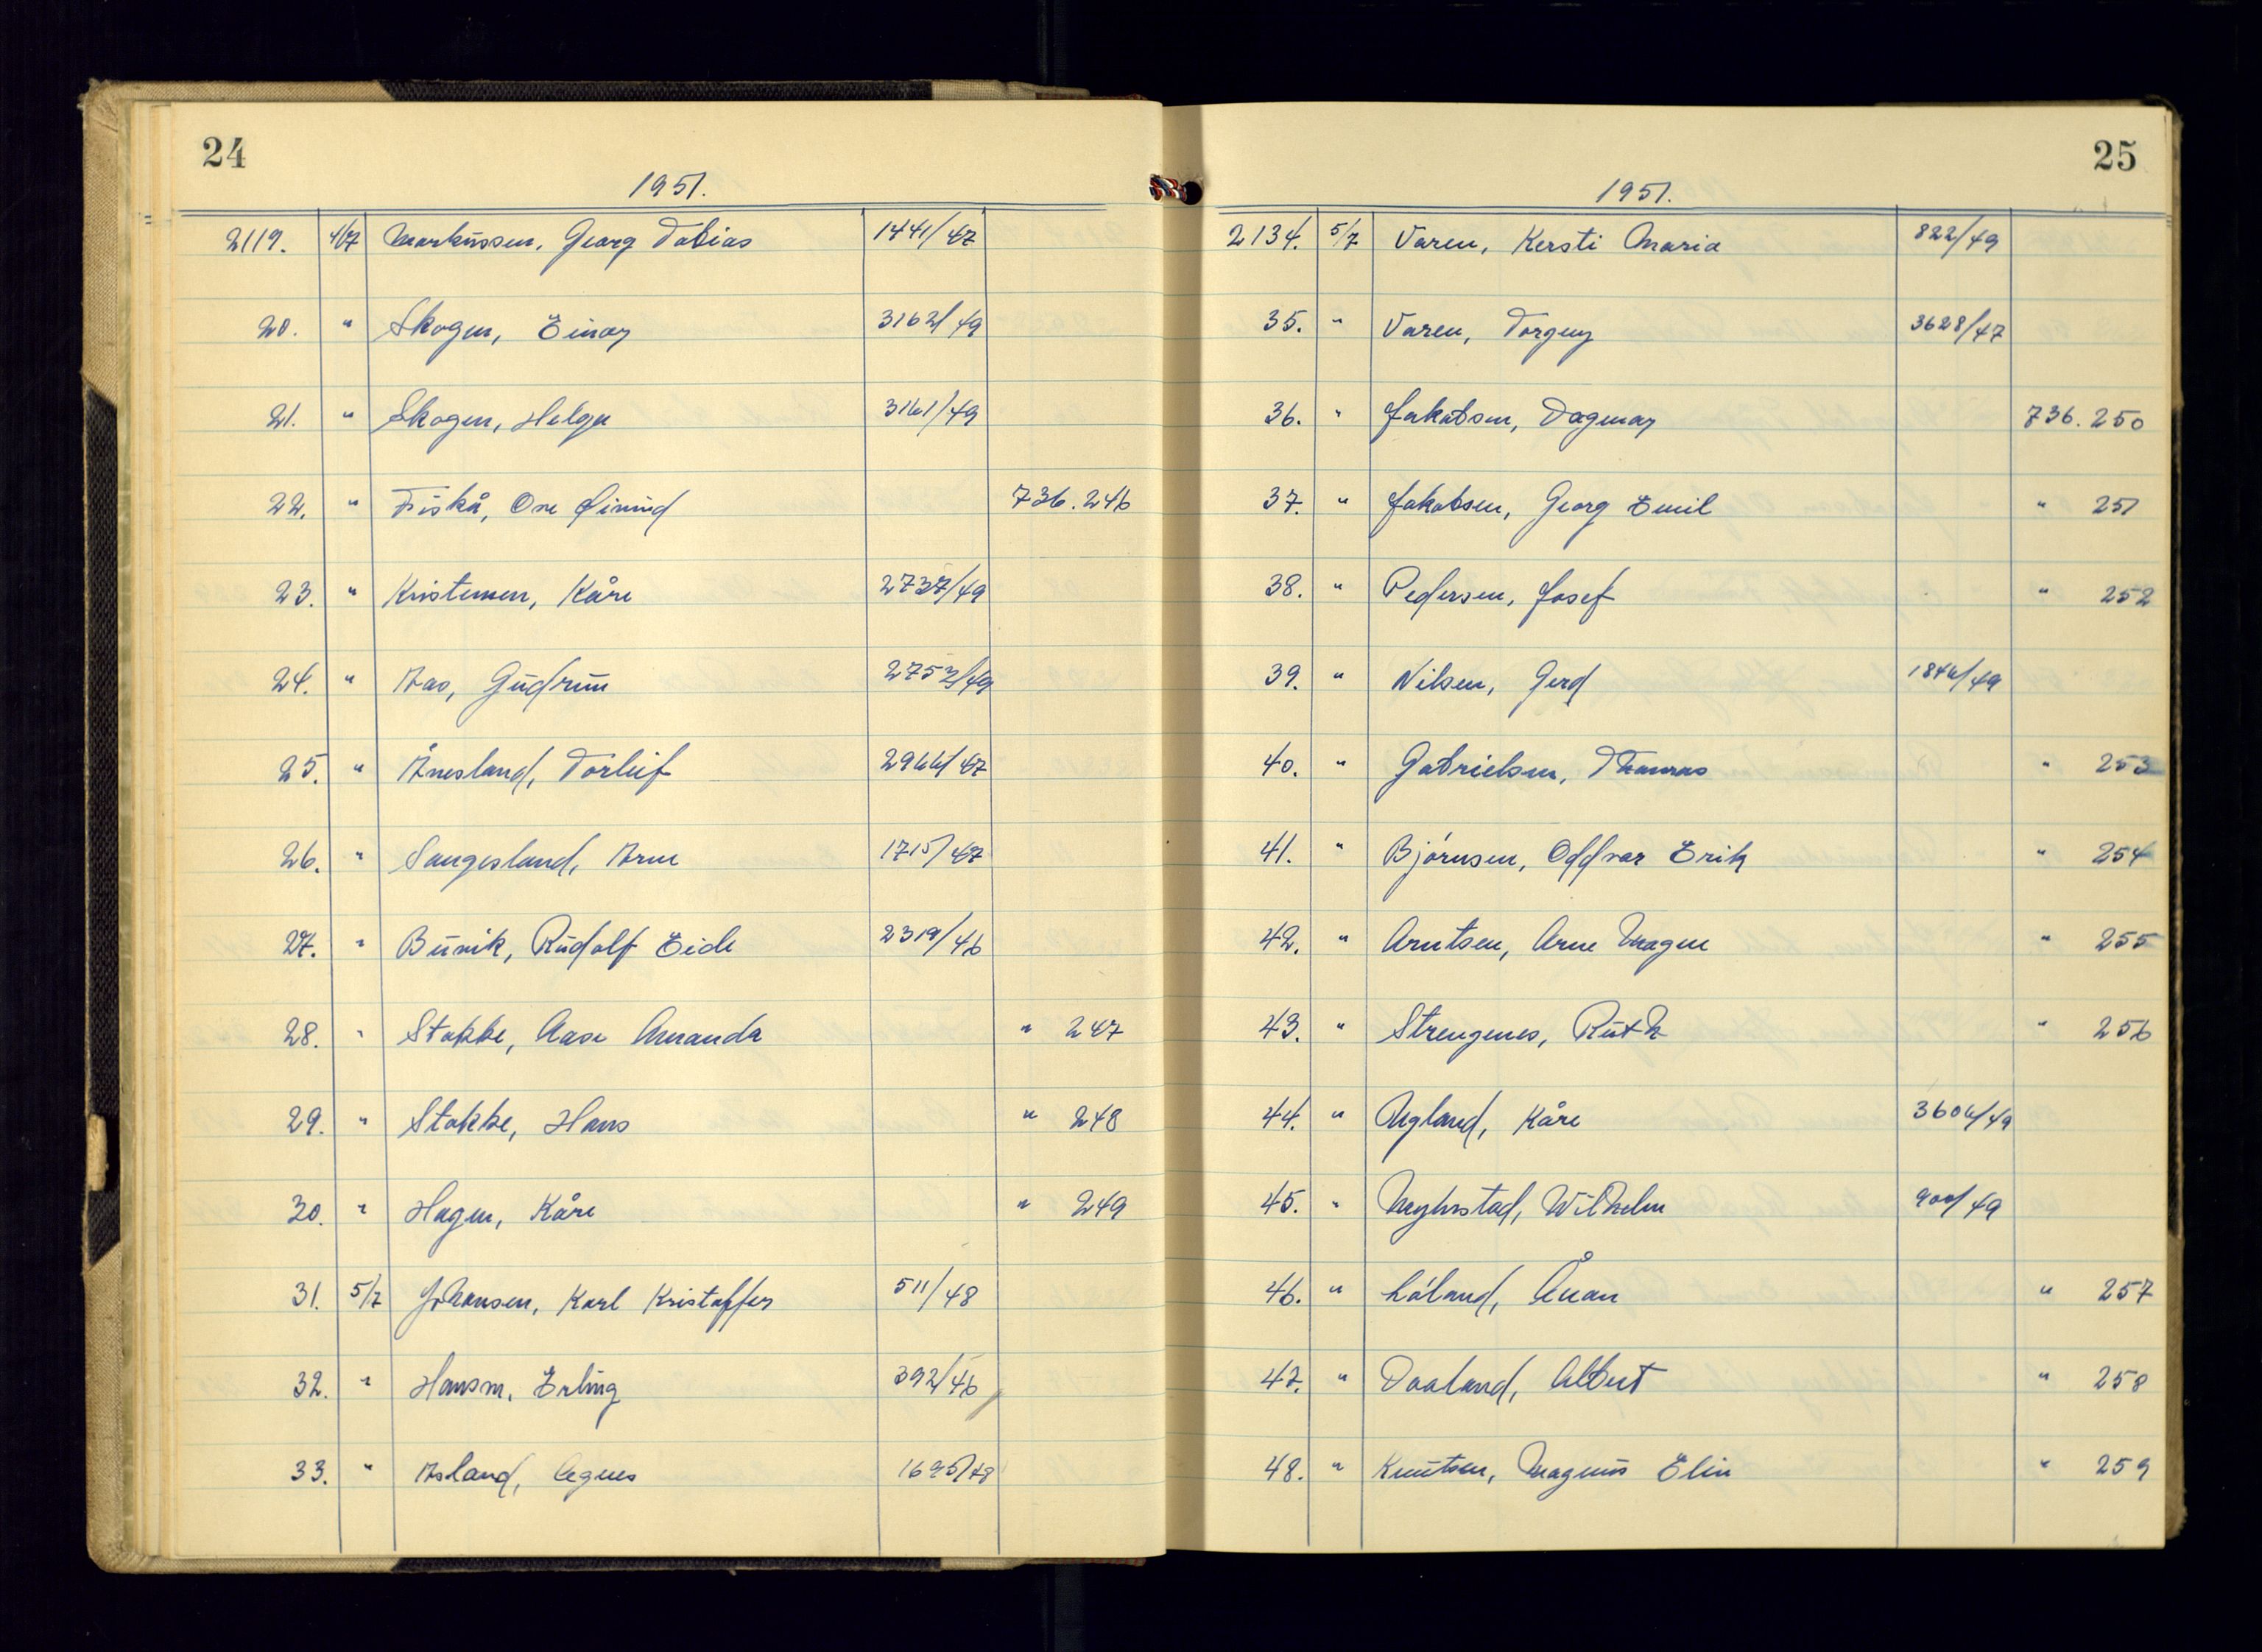 24
1951.
2119. 4/7 Markussen, Georg Tobias 1441/47
20. " Skogen, Einar 3162/49
21. " Skogen, Helga 3161/49
22. " Fiskå, One Øivind 736.246
23. " Kristensen, Kåre 2737/49
24. " Aas, Gudrun 2752/49
25. " Ånesland, Torleif 2966/47
26. " Saugesland, Arne 1715/47
27. " Buvik, Rudolf Eide 2319/46
28. " Stokke, Aase Amanda " 247
29. " Stokke, Hans " 248
30. " Hagen, Kåre " 249
31. 5/7 Johansen, Karl Kristoffer 511/48
32. " Hansen, Erling 392/46
33. " Asland, Agnes 1695/48
25
1951.
2134. 5/7 Varen, Kersti Maria 822/49
35. " Varen, Torguy 3628/47
36. " Jakobsen, Dagmar 736.250
37. " Jakobsen, Georg Emil " 251
38. " Pedersen, Josef " 252
39. " Nilsen, Gerd 1846/49
40. " Gabrielsen, Thomas " 253
41. " Bjórnsen, Oddvar Erik " 254
42. " Arntsen, Arne Magne " 255
43. " Strengenes, Ruth " 256
44. " Ugland, Kåre 3606/49
45. " Myhrstad, Wilhelm 900/49
46. " Lóland, Ånan " 257
47. " Daaland, Albert " 258
48. " Knutsen, Magnus Elin " 259